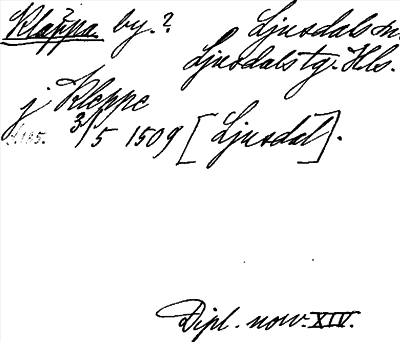 Kläppa by.? Ljusdals sn.
Ljusdals tg. Hls.
j Kleppe
3/5 1509 [Ljusdal].
Dipl. norv. XIV.